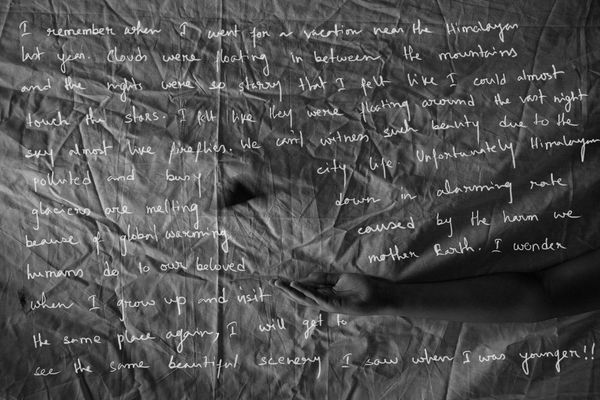 I remember when I went for a vacation near the Himalayan
last year. Clouds were floating in between the mountains
and the nights were so starry that I felt like I could almost
touch the stars. I felt like they were floating around the vast night
sky almost like fireflies. We can't witness such beauty due to the
polluted and busy city life. Unfortunately Himalayan
glaciers are melting down in alarming rate
because of global warming, caused by the harm we
humans do to our beloved mother Earth. I wonder
when I grow up and visit
the same place again, I will get to
see the same beautiful scenery I saw when I was younger!!